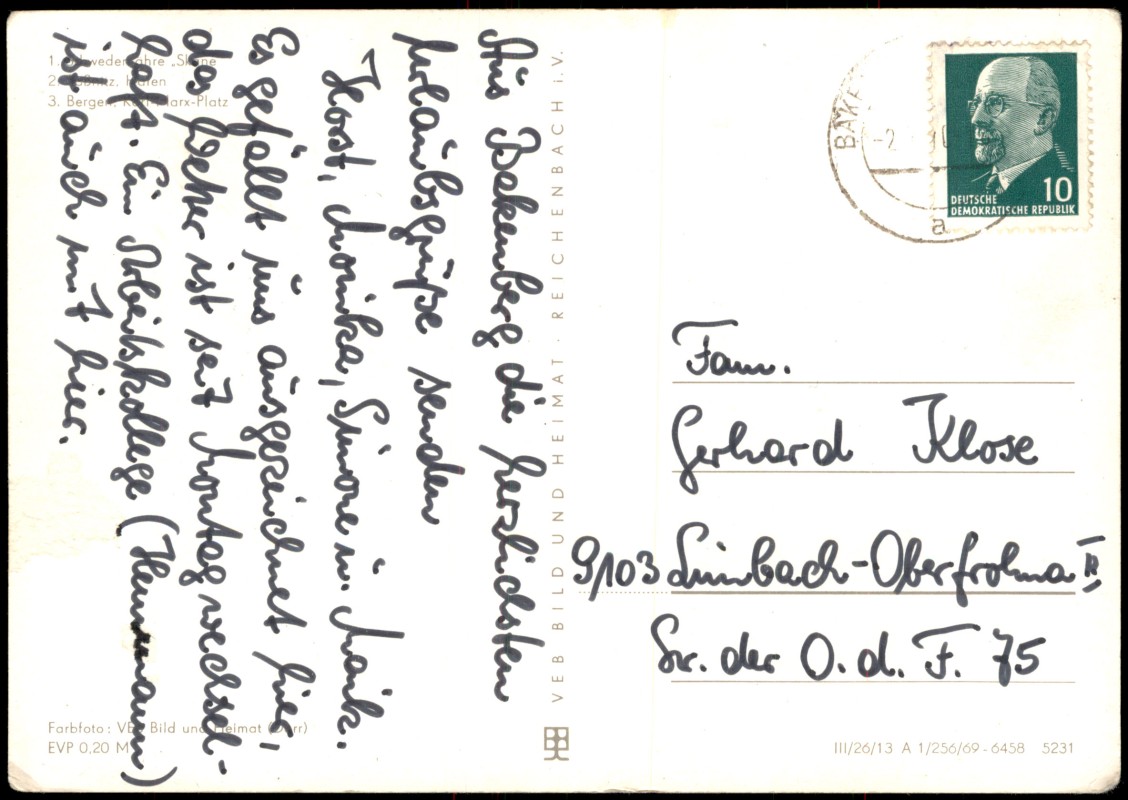 1. Schwedenfähre „Skåne
2. Saßnitz, Hafen
3. Bergen, Karl-Marx-Platz
Aus Bakenberg die herzlichsten
Urlaubsgrüße senden
Horst, Monika, Simone u. Maik.
Es gefällt uns ausgezeichnet hier,
das Wetter ist seit Montag wechsel-
haft. Ein Arbeitskollege (Hermann)
ist auch mit hier.
Farbfoto: VEB Bild und Heimat (Darr)
EVP 0,20 M
VEB BILD UND HEIMAT · REICHENBACH i. V.
BAKE
-2
a
10
DEUTSCHE
DEMOKRATISCHE REPUBLIK
Fam.
Gerhard Klose
9103 Limbach-Oberfrohna II
Str. der O. d. F. 75
III/26/13 A 1/256/69-6458 5231